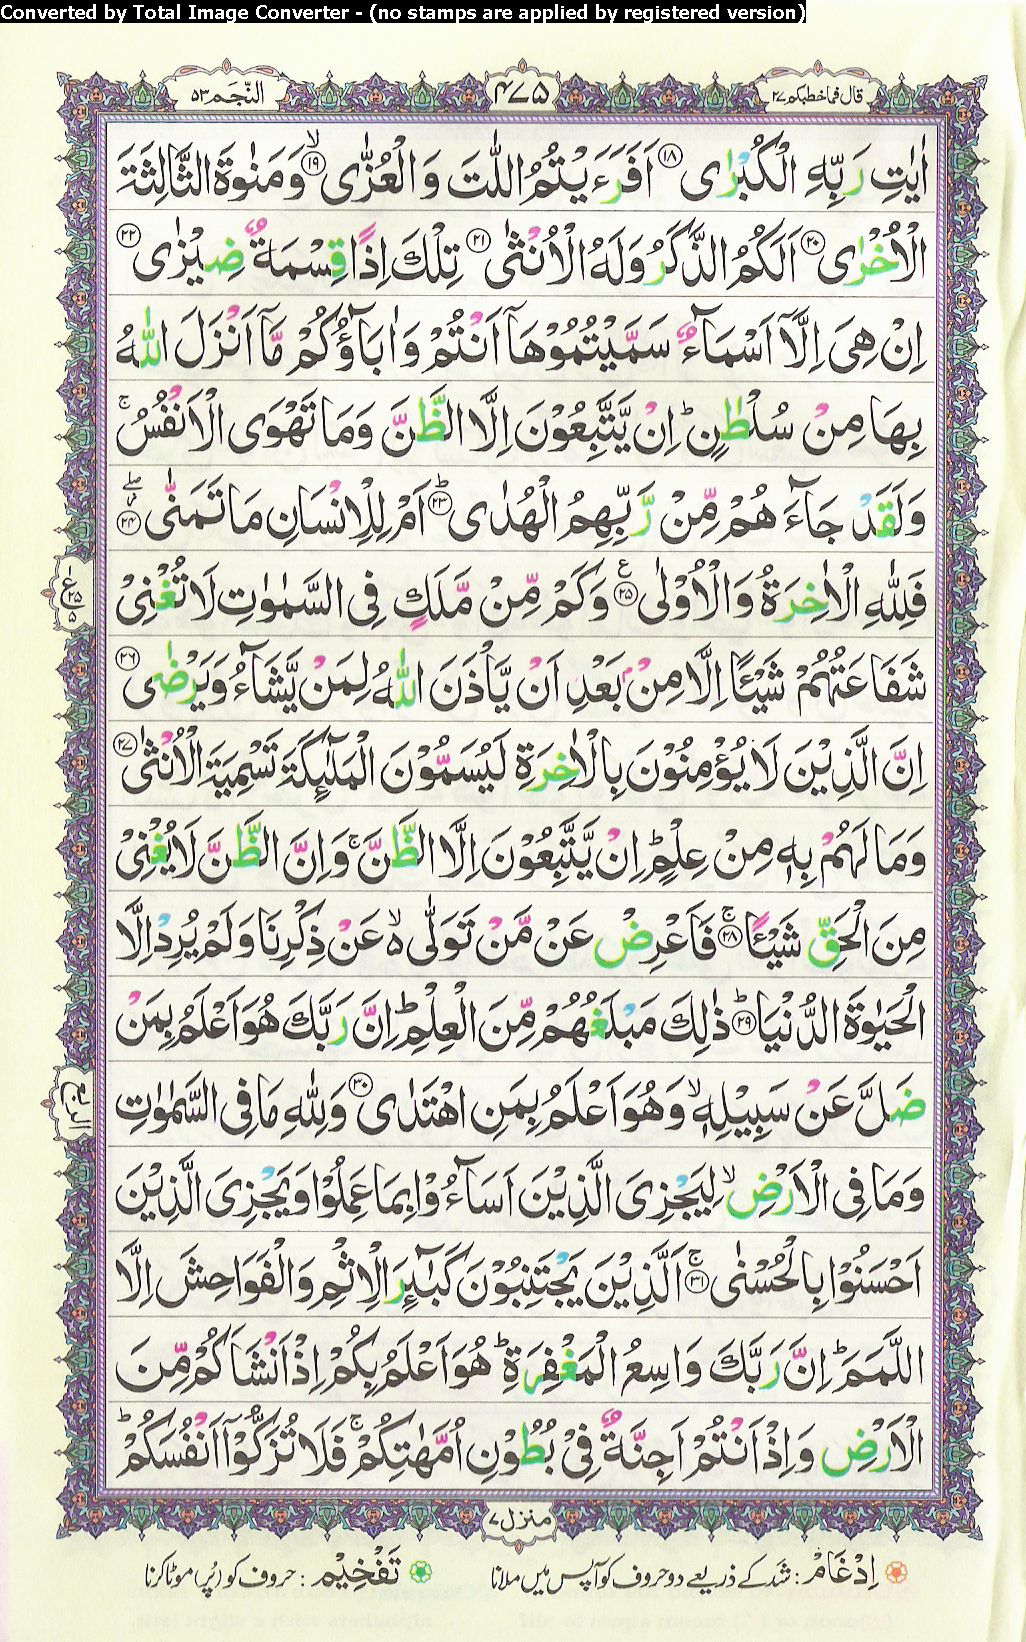 Converted by Total Image Converter - (no stamps are applied by registered version)
قال فما خطبکم ٢٧
٤٧٥
النّجم ٥٣
اٰیٰتِ رَبِّهِ الْكُبْرٰى ﴿۱۸﴾ اَفَرَءَیْتُمُ اللّٰتَ وَ الْعُزّٰى ﴿۱۹﴾ۙ وَ مَنٰوةَ الثَّالِثَةَ
الْاُخْرٰى ﴿۲۰﴾ اَلَكُمُ الذَّكَرُ وَلَهُ الْاُنْثٰى ﴿۲۱﴾ تِلْكَ اِذًا قِسْمَةٌ ضِیْزٰى ﴿۲۲﴾
اِنْ هِیَ اِلَّاۤ اَسْمَآءٌ سَمَّیْتُمُوْهَاۤ اَنْتُمْ وَ اٰبَآؤُكُمْ مَّاۤ اَنْزَلَ اللّٰهُ
بِهَا مِنْ سُلْطٰنٍ ؕ اِنْ یَّتَّبِعُوْنَ اِلَّا الظَّنَّ وَمَا تَهْوَى الْاَنْفُسُ ۚ
وَلَقَدْ جَآءَ هُمْ مِّنْ رَّبِّهِمُ الْهُدٰى ﴿۲۳﴾ؕ اَمْ لِلْاِنْسَانِ مَا تَمَنّٰى ﴿۲۴﴾ۖ
فَلِلّٰهِ الْاٰخِرَةُ وَالْاُوْلٰى ﴿۲۵﴾ وَكَمْ مِّنْ مَّلَكٍ فِی السَّمٰوٰتِ لَا تُغْنِیْ
شَفَاعَتُهُمْ شَیْـًٔا اِلَّا مِنْۢ بَعْدِ اَنْ یَّاْذَنَ اللّٰهُ لِمَنْ یَّشَآءُ وَیَرْضٰى ﴿۲۶﴾
اِنَّ الَّذِیْنَ لَا یُؤْمِنُوْنَ بِالْاٰخِرَةِ لَیُسَمُّوْنَ الْمَلٰٓىِٕكَةَ تَسْمِیَةَ الْاُنْثٰى ﴿۲۷﴾
وَمَا لَهُمْ بِهٖ مِنْ عِلْمٍ ؕ اِنْ یَّتَّبِعُوْنَ اِلَّا الظَّنَّ ۚ وَاِنَّ الظَّنَّ لَا یُغْنِیْ
مِنَ الْحَقِّ شَیْـًٔا ﴿۲۸﴾ۚ فَاَعْرِضْ عَنْ مَّنْ تَوَلّٰى ۙ۬ عَنْ ذِكْرِنَا وَلَمْ یُرِدْ اِلَّا
الْحَیٰوةَ الدُّنْیَا ﴿۲۹﴾ؕ ذٰلِكَ مَبْلَغُهُمْ مِّنَ الْعِلْمِ ؕ اِنَّ رَبَّكَ هُوَ اَعْلَمُ بِمَنْ
ضَلَّ عَنْ سَبِیْلِهٖ ۙ وَهُوَ اَعْلَمُ بِمَنِ اهْتَدٰى ﴿۳۰﴾ وَلِلّٰهِ مَا فِی السَّمٰوٰتِ
وَمَا فِی الْاَرْضِ ۙ لِیَجْزِیَ الَّذِیْنَ اَسَآءُوْا بِمَا عَمِلُوْا وَیَجْزِیَ الَّذِیْنَ
اَحْسَنُوْا بِالْحُسْنٰى ﴿۳۱﴾ۚ اَلَّذِیْنَ یَجْتَنِبُوْنَ كَبٰٓىِٕرَ الْاِثْمِ وَالْفَوَاحِشَ اِلَّا
اللَّمَمَ ؕ اِنَّ رَبَّكَ وَاسِعُ الْمَغْفِرَةِ ؕ هُوَ اَعْلَمُ بِكُمْ اِذْ اَنْشَاَكُمْ مِّنَ
الْاَرْضِ وَ اِذْ اَنْتُمْ اَجِنَّةٌ فِیْ بُطُوْنِ اُمَّهٰتِكُمْ ۚ فَلَا تُزَكُّوْۤا اَنْفُسَكُمْ ؕ
ع ٢٥ ٥
الربع
منزل ٧
اِدْغَامْ : شد کے ذریعے دو حروف کو آپس میں ملانا
تَفْخِيْم : حروف کو (پُر) موٹا کرنا